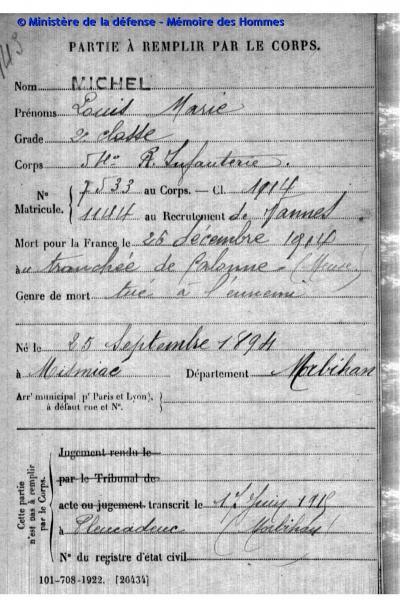 © Ministère de la défense - Mémoire des Hommes
PARTIE À REMPLIR PAR LE CORPS.
Nom MICHEL
Prénoms Louis Marie
Grade 2e classe
Corps R. Infanterie.
Nº Matricule. 7533 au Corps. — Cl. 1914
1144 au Recrutement de Vannes
Mort pour la France le 26 décembre 1914
à tranchée de Calonne - (Meuse)
Genre de mort tué à l'ennemi
Né le 25 Septembre 1894
à Département Morbihan
Arrt municipal (pr Paris et Lyon), à défaut rue et Nº.
Cette partie n'est pas à remplir par le Corps.
Jugement rendu le
par le Tribunal de
acte ou jugement transcrit le 17 Juin 1915
à Pleucadeuc (Morbihan)
Nº du registre d'état civil
101-708-1922. [26434]